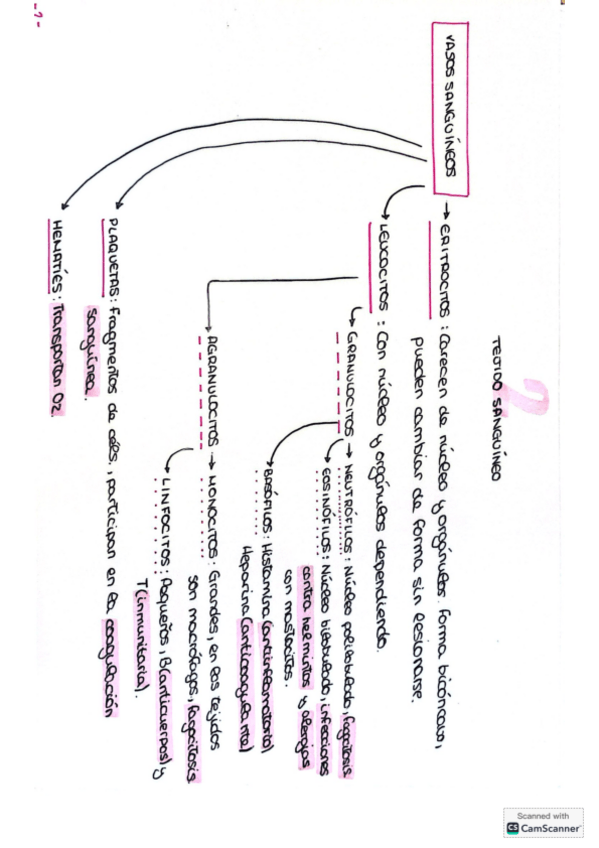 2
TEJIDO SANGUÍNEO
VASOS SANGUÍNEOS
→ ERITROCITOS: Carecen de núcleo y orgánulos. Forma bicóncava,
pueden cambiar de forma sin lesionarse.
LEUCOCITOS: Con núcleo y orgánulos dependiendo.
GRANULOCITOS → NEUTRÓFILOS: Núcleo polilobulado, fagocitosis
EOSINÓFILOS: Núcleo bilobulado, infecciones
contra helmintos y alergias
con mastocitos.
BASÓFILOS: Histamina (antiinflamatoria)
Heparina (anticoagulante)
AGRANULOCITOS → MONOCITOS: Grandes, en los tejidos
son macrófagos, fagocitosis
LINFOCITOS: Pequeños, B (anticuerpos) y
T (inmunitaria).
PLAQUETAS: Fragmentos de céls, participan en la coagulación
sanguínea.
HEMATÍES: Transportan O2.
-1-
Scanned with
CS CamScanner